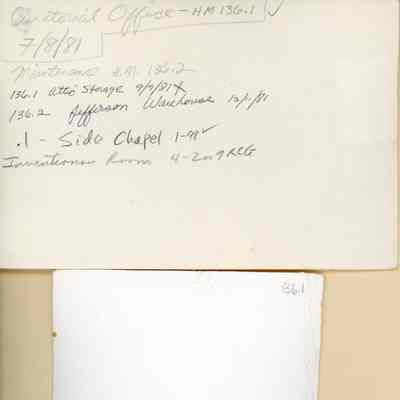 Curatorial Office - HM 136.1 ✓
7/8/81
Maintenance H.M. 136.2
136.1 Attic Storage 9/9/81
136.2 Jefferson Warehouse 12/1/81
.1 - Side Chapel 1-98 ✓
Inventions Room 4-2009 RCG
136.1